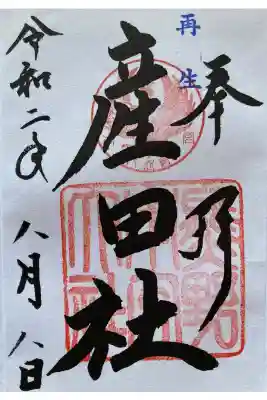 再生
奉拝
産田社
令和二年八月八日